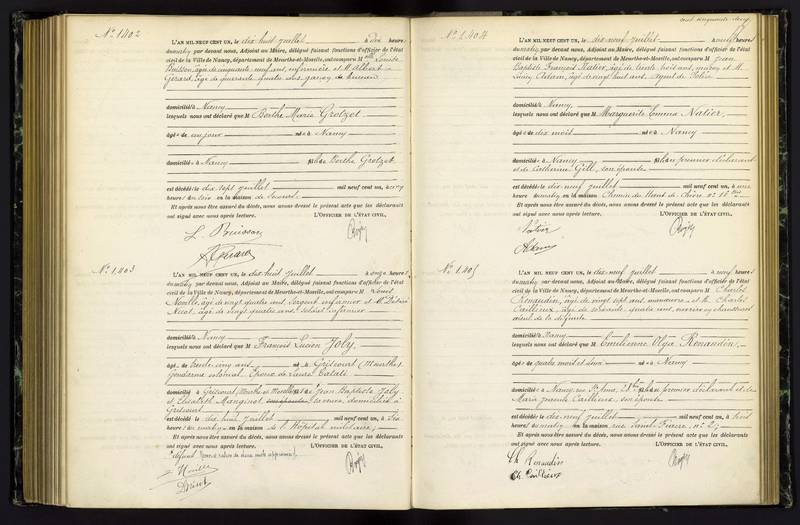 N° 1402
L'AN MIL NEUF CENT UN, le dix huit juillet à dix heures
du matin par devant nous, Adjoint au Maire, délégué faisant fonctions d'officier de l'état
civil de la Ville de Nancy, département de Meurthe-et-Moselle, ont comparu M elle Louise
Buisson, âgée de cinquante neuf ans, infirmière et M Albert
Gérard, âgé de quarante quatre ans, garçon de bureau
domiciliés à Nancy
lesquels nous ont déclaré que M Berthe Marie Grotzet
âgée de un jour née à Nancy
domiciliée à Nancy fille de Berthe Grotzet
est décédée le dix sept juillet mil neuf cent un, à cinq
heures du soir en la maison de secours
Et après nous être assuré du décès, nous avons dressé le présent acte que les déclarants
ont signé avec nous après lecture. L'OFFICIER DE L'ÉTAT CIVIL,
L. Buisson
Gérard
N° 1403
L'AN MIL NEUF CENT UN, le dix huit juillet à onze heures
du matin par devant nous, Adjoint au Maire, délégué faisant fonctions d'officier de l'état
civil de la Ville de Nancy, département de Meurthe-et-Moselle, ont comparu M Louis
Noville, âgé de vingt quatre ans, Sergent infirmier et M Désiré
Nicot, âgé de vingt quatre ans, soldat infirmier
domiciliés à Nancy
lesquels nous ont déclaré que M François Lucien Joly
âgé de trente cinq ans né à Griscourt (Meurthe)
Gendarme colonial, Epoux de Laure Catala
domicilié à Griscourt (Meurthe et Moselle) fils de Jean Baptiste Joly
et Elisabeth Mangenot, son épouse sa veuve, domiciliée à
Griscourt
est décédé le dix huit juillet mil neuf cent un, à six
heures du matin en la maison de l'Hôpital militaire,
Et après nous être assuré du décès, nous avons dressé le présent acte que les déclarants
ont signé avec nous après lecture. L'OFFICIER DE L'ÉTAT CIVIL,
N° 1404
L'AN MIL NEUF CENT UN, le dix neuf juillet à neuf heures
du matin par devant nous, Adjoint au Maire, délégué faisant fonctions d'officier de l'état
civil de la Ville de Nancy, département de Meurthe-et-Moselle, ont comparu M Jean
Baptiste François Natier, âgé de trente huit ans, et M.
Adam, âgé de vingt huit ans, agent de Police
domiciliés à Nancy
lesquels nous ont déclaré que M Marguerite Emma Natier,
âgée de dix mois née à Nancy
domiciliée à Nancy fille du premier déclarant
et de Catherine Gill, son épouse
est décédée le dix neuf juillet mil neuf cent un, à une
heure du matin en la maison Chemin du
Et après nous être assuré du décès, nous avons dressé le présent acte que les déclarants
ont signé avec nous après lecture. L'OFFICIER DE L'ÉTAT CIVIL,
Natier
Adam
N° 1405
L'AN MIL NEUF CENT UN, le dix neuf juillet à neuf heures
du matin par devant nous, Adjoint au Maire, délégué faisant fonctions d'officier de l'état
civil de la Ville de Nancy, département de Meurthe-et-Moselle, ont comparu M Charles
Renaudin, âgé de vingt sept ans, manœuvre et M. Charles
Cailleux, âgé de soixante quatre ans, ouvrier en chaussures
aïeul de la défunte
domiciliés à Nancy
lesquels nous ont déclaré que M Emilienne Olga Renaudin,
âgée de quatre mois et demi née à Nancy
domiciliée à Nancy, rue St fille du premier déclarant et de
Marie Jeanne Cailleux, son épouse
est décédée le dix neuf juillet mil neuf cent un, à huit
heures du matin en la maison rue Sainte n° 2
Et après nous être assuré du décès, nous avons dressé le présent acte que les déclarants
ont signé avec nous après lecture. L'OFFICIER DE L'ÉTAT CIVIL,
Ch. Renaudin
Ch. Cailleux